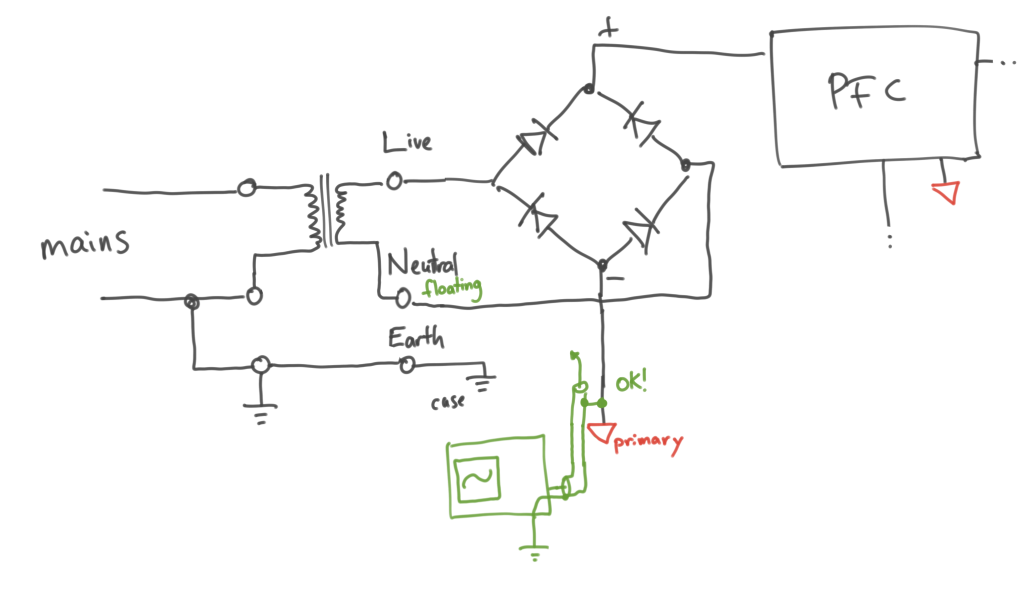 +
PFC
Live
mains
Neutral
floating
−
Earth
OK!
case
primary